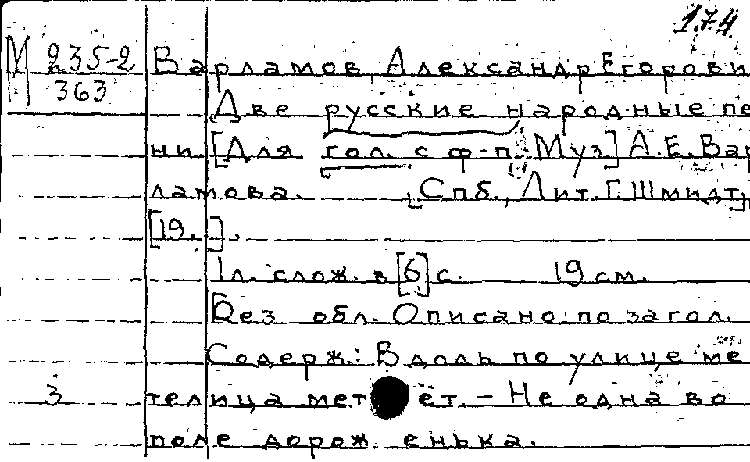 174
М 235-2
363
Варламов, Александр Егорови
Две русские народные пе
ни [Для гол. с ф-п. Муз.] А.Е. Вар
ламова. [Спб., Лит. Г. Шмидт]
[19. ].
1 л. слож. в [6] с. 19 см.
Без обл. Описано по загол.
Содерж.: Вдоль по улице ме
3 телица мет ет. - Не одна во
поле дорож енька.